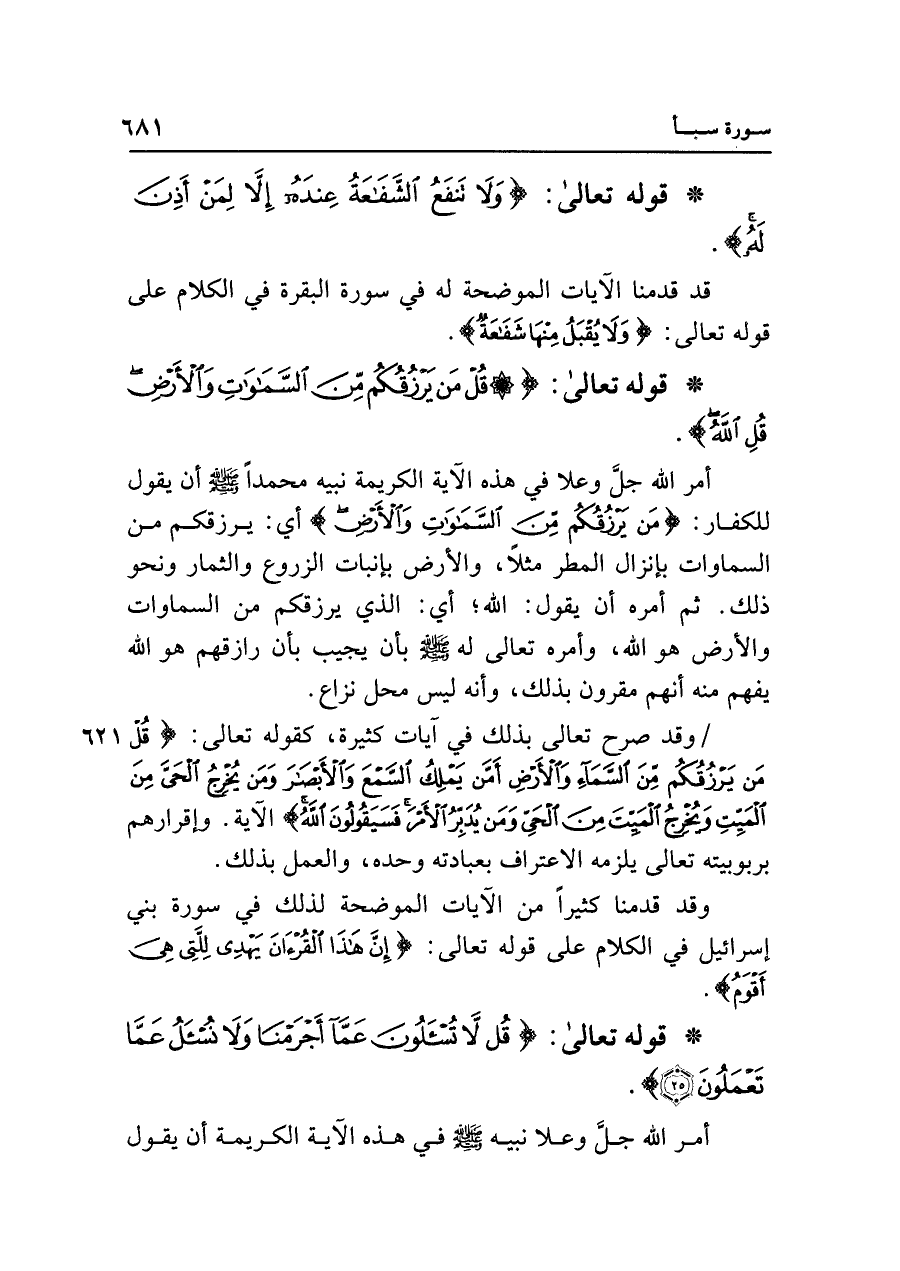 سورة سبأ ٦٨١
* قوله تعالىٰ: ﴿ وَلَا تَنفَعُ ٱلشَّفَٰعَةُ عِندَهُۥٓ إِلَّا لِمَنْ أَذِنَ
لَهُۥۚ ﴾ .
قد قدمنا الآيات الموضحة له في سورة البقرة في الكلام على
قوله تعالى: ﴿ وَلَا يُقْبَلُ مِنْهَا شَفَٰعَةٌ ﴾ .
* قوله تعالىٰ: ﴿ ۞ قُلْ مَن يَرْزُقُكُم مِّنَ ٱلسَّمَٰوَٰتِ وَٱلْأَرْضِۖ
قُلِ ٱللَّهُۖ ﴾ .
أمر الله جلَّ وعلا في هذه الآية الكريمة نبيه محمداً ﷺ أن يقول
للكفار: ﴿ مَن يَرْزُقُكُم مِّنَ ٱلسَّمَٰوَٰتِ وَٱلْأَرْضِۖ ﴾ أي: يرزقكم من
السماوات بإنزال المطر مثلاً، والأرض بإنبات الزروع والثمار ونحو
ذلك. ثم أمره أن يقول: الله؛ أي: الذي يرزقكم من السماوات
والأرض هو الله، وأمره تعالى له ﷺ بأن يجيب بأن رازقهم هو الله
يفهم منه أنهم مقرون بذلك، وأنه ليس محل نزاع.
/ وقد صرح تعالى بذلك في آيات كثيرة، كقوله تعالى: ﴿ قُلْ ٦٢١
مَن يَرْزُقُكُم مِّنَ ٱلسَّمَآءِ وَٱلْأَرْضِ أَمَّن يَمْلِكُ ٱلسَّمْعَ وَٱلْأَبْصَٰرَ وَمَن يُخْرِجُ ٱلْحَىَّ مِنَ
ٱلْمَيِّتِ وَيُخْرِجُ ٱلْمَيِّتَ مِنَ ٱلْحَىِّ وَمَن يُدَبِّرُ ٱلْأَمْرَۚ فَسَيَقُولُونَ ٱللَّهُۚ ﴾ الآية. وإقرارهم
بربوبيته تعالى يلزمه الاعتراف بعبادته وحده، والعمل بذلك.
وقد قدمنا كثيراً من الآيات الموضحة لذلك في سورة بني
إسرائيل في الكلام على قوله تعالى: ﴿ إِنَّ هَٰذَا ٱلْقُرْءَانَ يَهْدِى لِلَّتِى هِىَ
أَقْوَمُ ﴾ .
* قوله تعالىٰ: ﴿ قُل لَّا تُسْـَٔلُونَ عَمَّآ أَجْرَمْنَا وَلَا نُسْـَٔلُ عَمَّا
تَعْمَلُونَ ٢٥ ﴾ .
أمر الله جلَّ وعلا نبيه ﷺ في هذه الآية الكريمة أن يقول